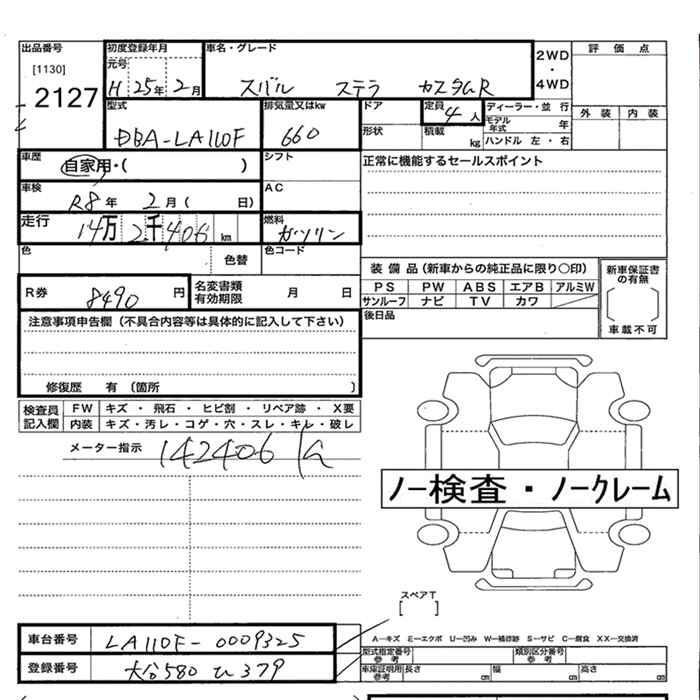 出品番号
[1130]
2127
初度登録年月
元号
H 25年 2月
車名・グレード
スバル ステラ カスタムR
2WD
・
4WD
評価点
外装 内装
型式
DBA-LA110F
排気量又はkw
660
ドア
形状
定員
4人
積載
kg
ディーラー・並行
モデル年式 年
ハンドル 左・右
車歴
自家用・( )
シフト
正常に機能するセールスポイント
車検
R8年 2月( 日)
AC
走行
14万2千406 km
燃料
ガソリン
色
色替
色コード
装備品(新車からの純正品に限り○印)
PS PW ABS エアB アルミW
サンルーフ ナビ TV カワ
新車保証書の有無
車載不可
R券
8490円
名変書類有効期限 月 日
後日品
注意事項申告欄(不具合内容等は具体的に記入して下さい)
修復歴 有(箇所 )
検査員記入欄
FW キズ・飛石・ヒビ割・リペア跡・X要
内装 キズ・汚レ・コゲ・穴・スレ・キレ・破レ
メーター指示
142406 K
ノー検査・ノークレーム
スペアT
[ ]
車台番号
LA110F-0009325
登録番号
大分580 ひ379
A―キズ E―エクボ U―凹み W―補修跡 S―サビ C―腐食 XX―交換済
型式指定番号
参考
類別区分番号
参考
車庫証明用参考
長さ cm 幅 cm 高さ cm